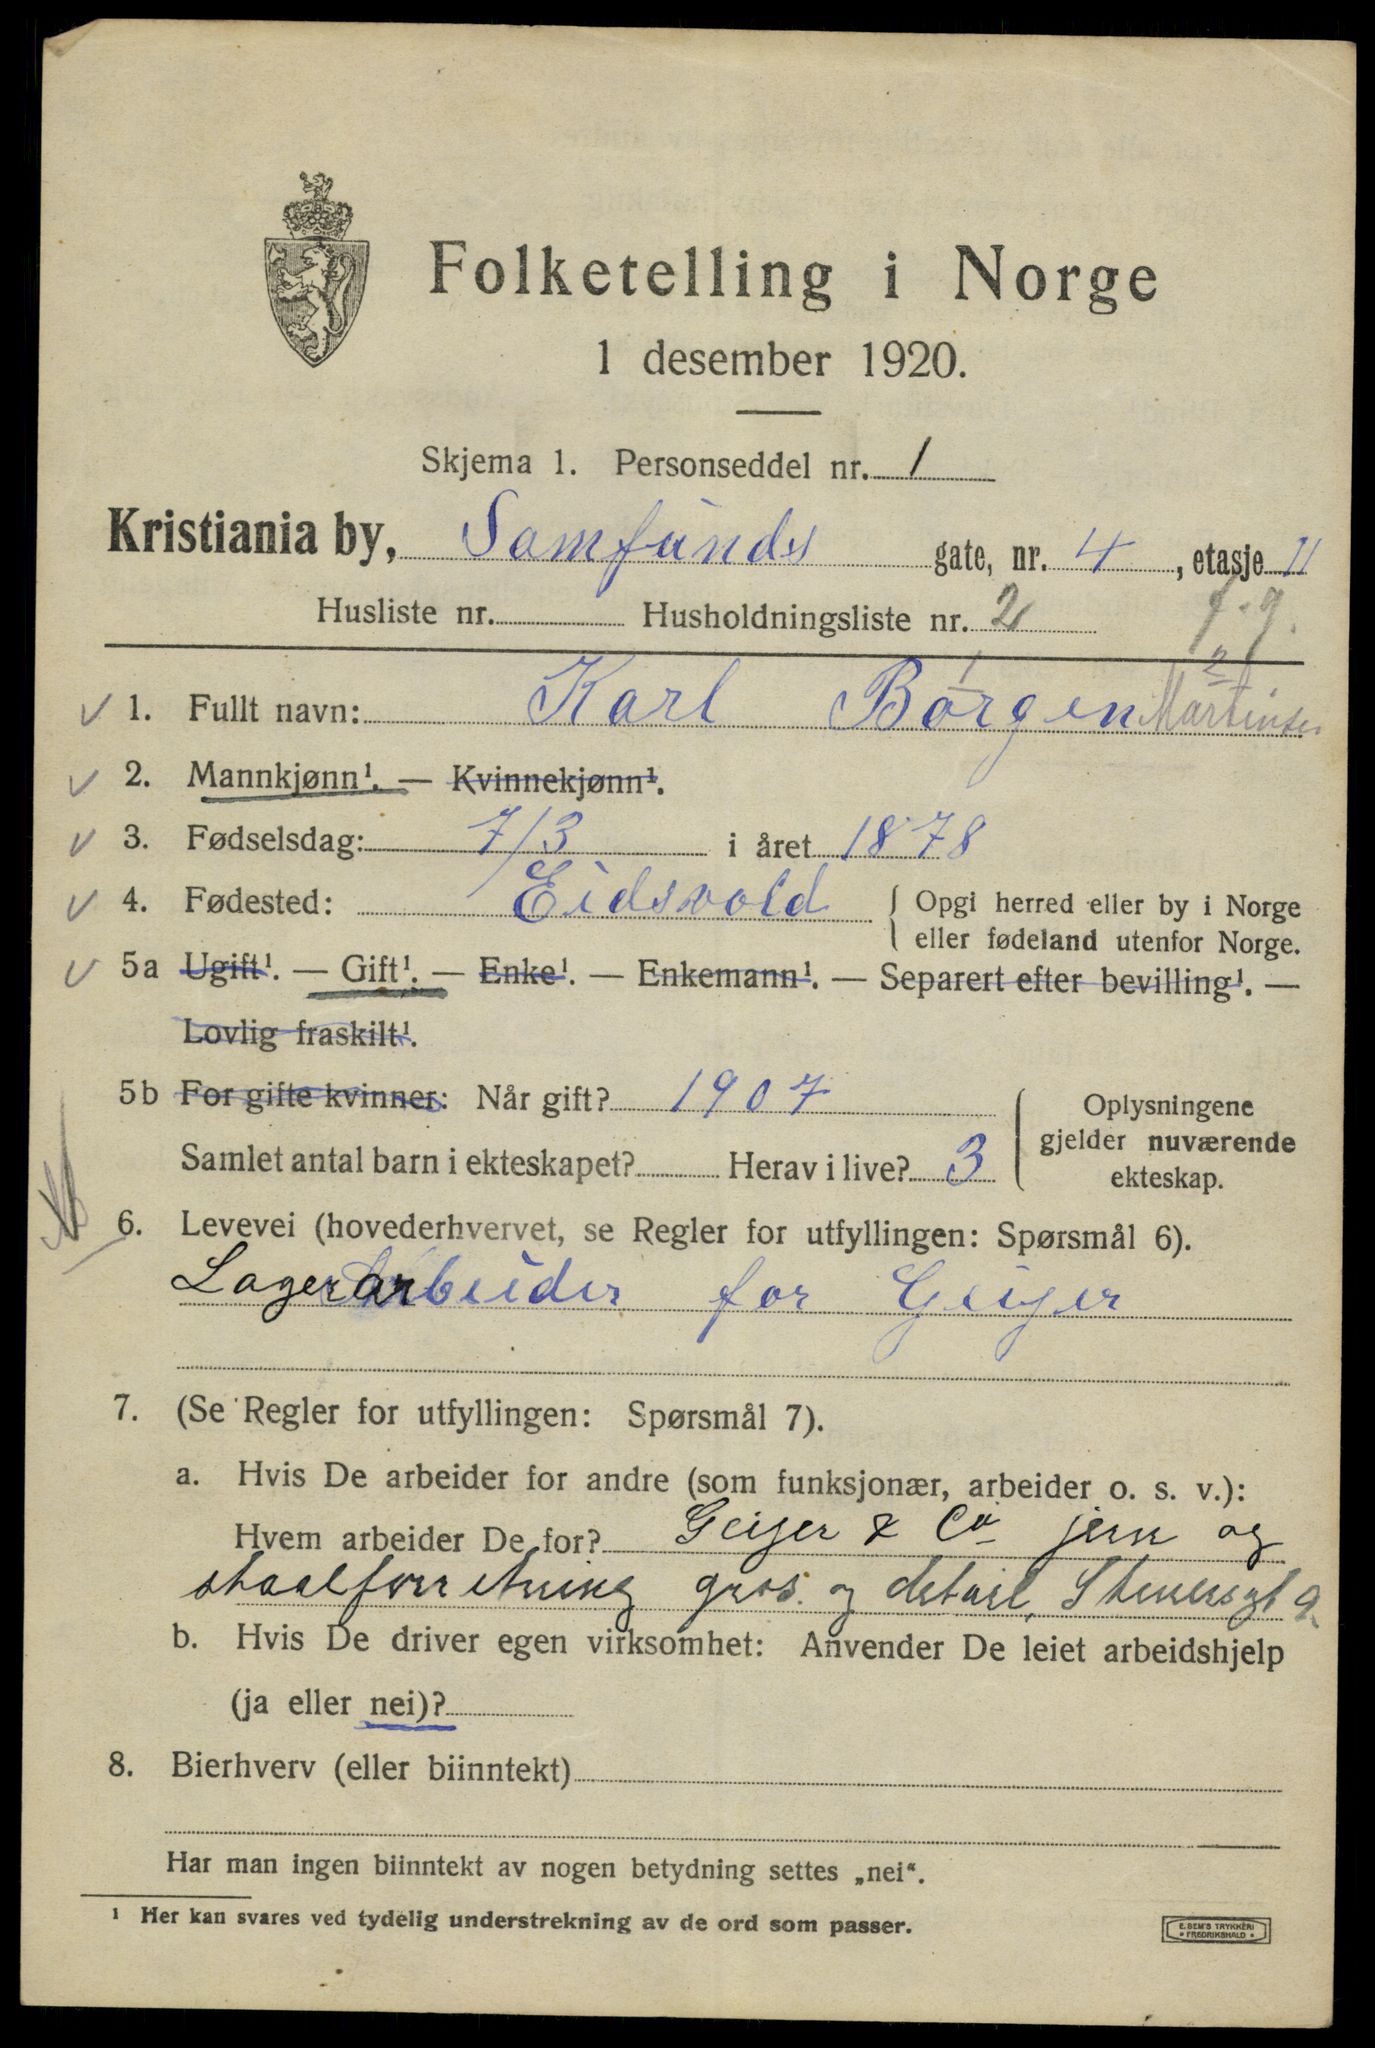 Folketelling i Norge
1 desember 1920.
Skjema 1. Personseddel nr. 1
Kristiania by, Samfunds gate, nr. 4, etasje II
Husliste nr. Husholdningsliste nr. 2
1 2
1. Fullt navn: Karl Børgen Martinsen
2. Mannkjønn¹. — Kvinnekjønn¹.
3. Fødselsdag: 7/3 i året 1878
4. Fødested: Eidsvold { Opgi herred eller by i Norge
eller fødeland utenfor Norge.
5a Ugift¹. — Gift¹. — Enke¹. — Enkemann¹. — Separert efter bevilling¹. —
Lovlig fraskilt¹.
5b For gifte kvinner: Når gift? 1907
Samlet antal barn i ekteskapet? Herav i live? 3
{ Oplysningene
gjelder nuværende
ekteskap.
6. Levevei (hovederhvervet, se Regler for utfyllingen: Spørsmål 6).
Lagerarbeider for Geiger
7. (Se Regler for utfyllingen: Spørsmål 7).
a. Hvis De arbeider for andre (som funksjonær, arbeider o. s. v.):
Hvem arbeider De for? Geiger & Co jern og
staalforretning gros. og detail, Stenersgt 9.
b. Hvis De driver egen virksomhet: Anvender De leiet arbeidshjelp
(ja eller nei)?
8. Bierhverv (eller biinntekt)
Har man ingen biinntekt av nogen betydning settes „nei“.
¹ Her kan svares ved tydelig understrekning av de ord som passer.
E. SEM'S TRYKKERI
• FREDRIKSHALD •